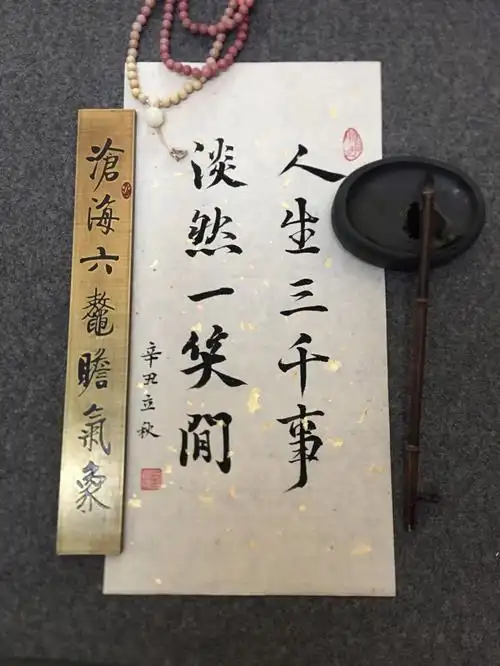 人生三千事
淡然一笑閒
辛丑立秋
滄海六鼇瞻氣象